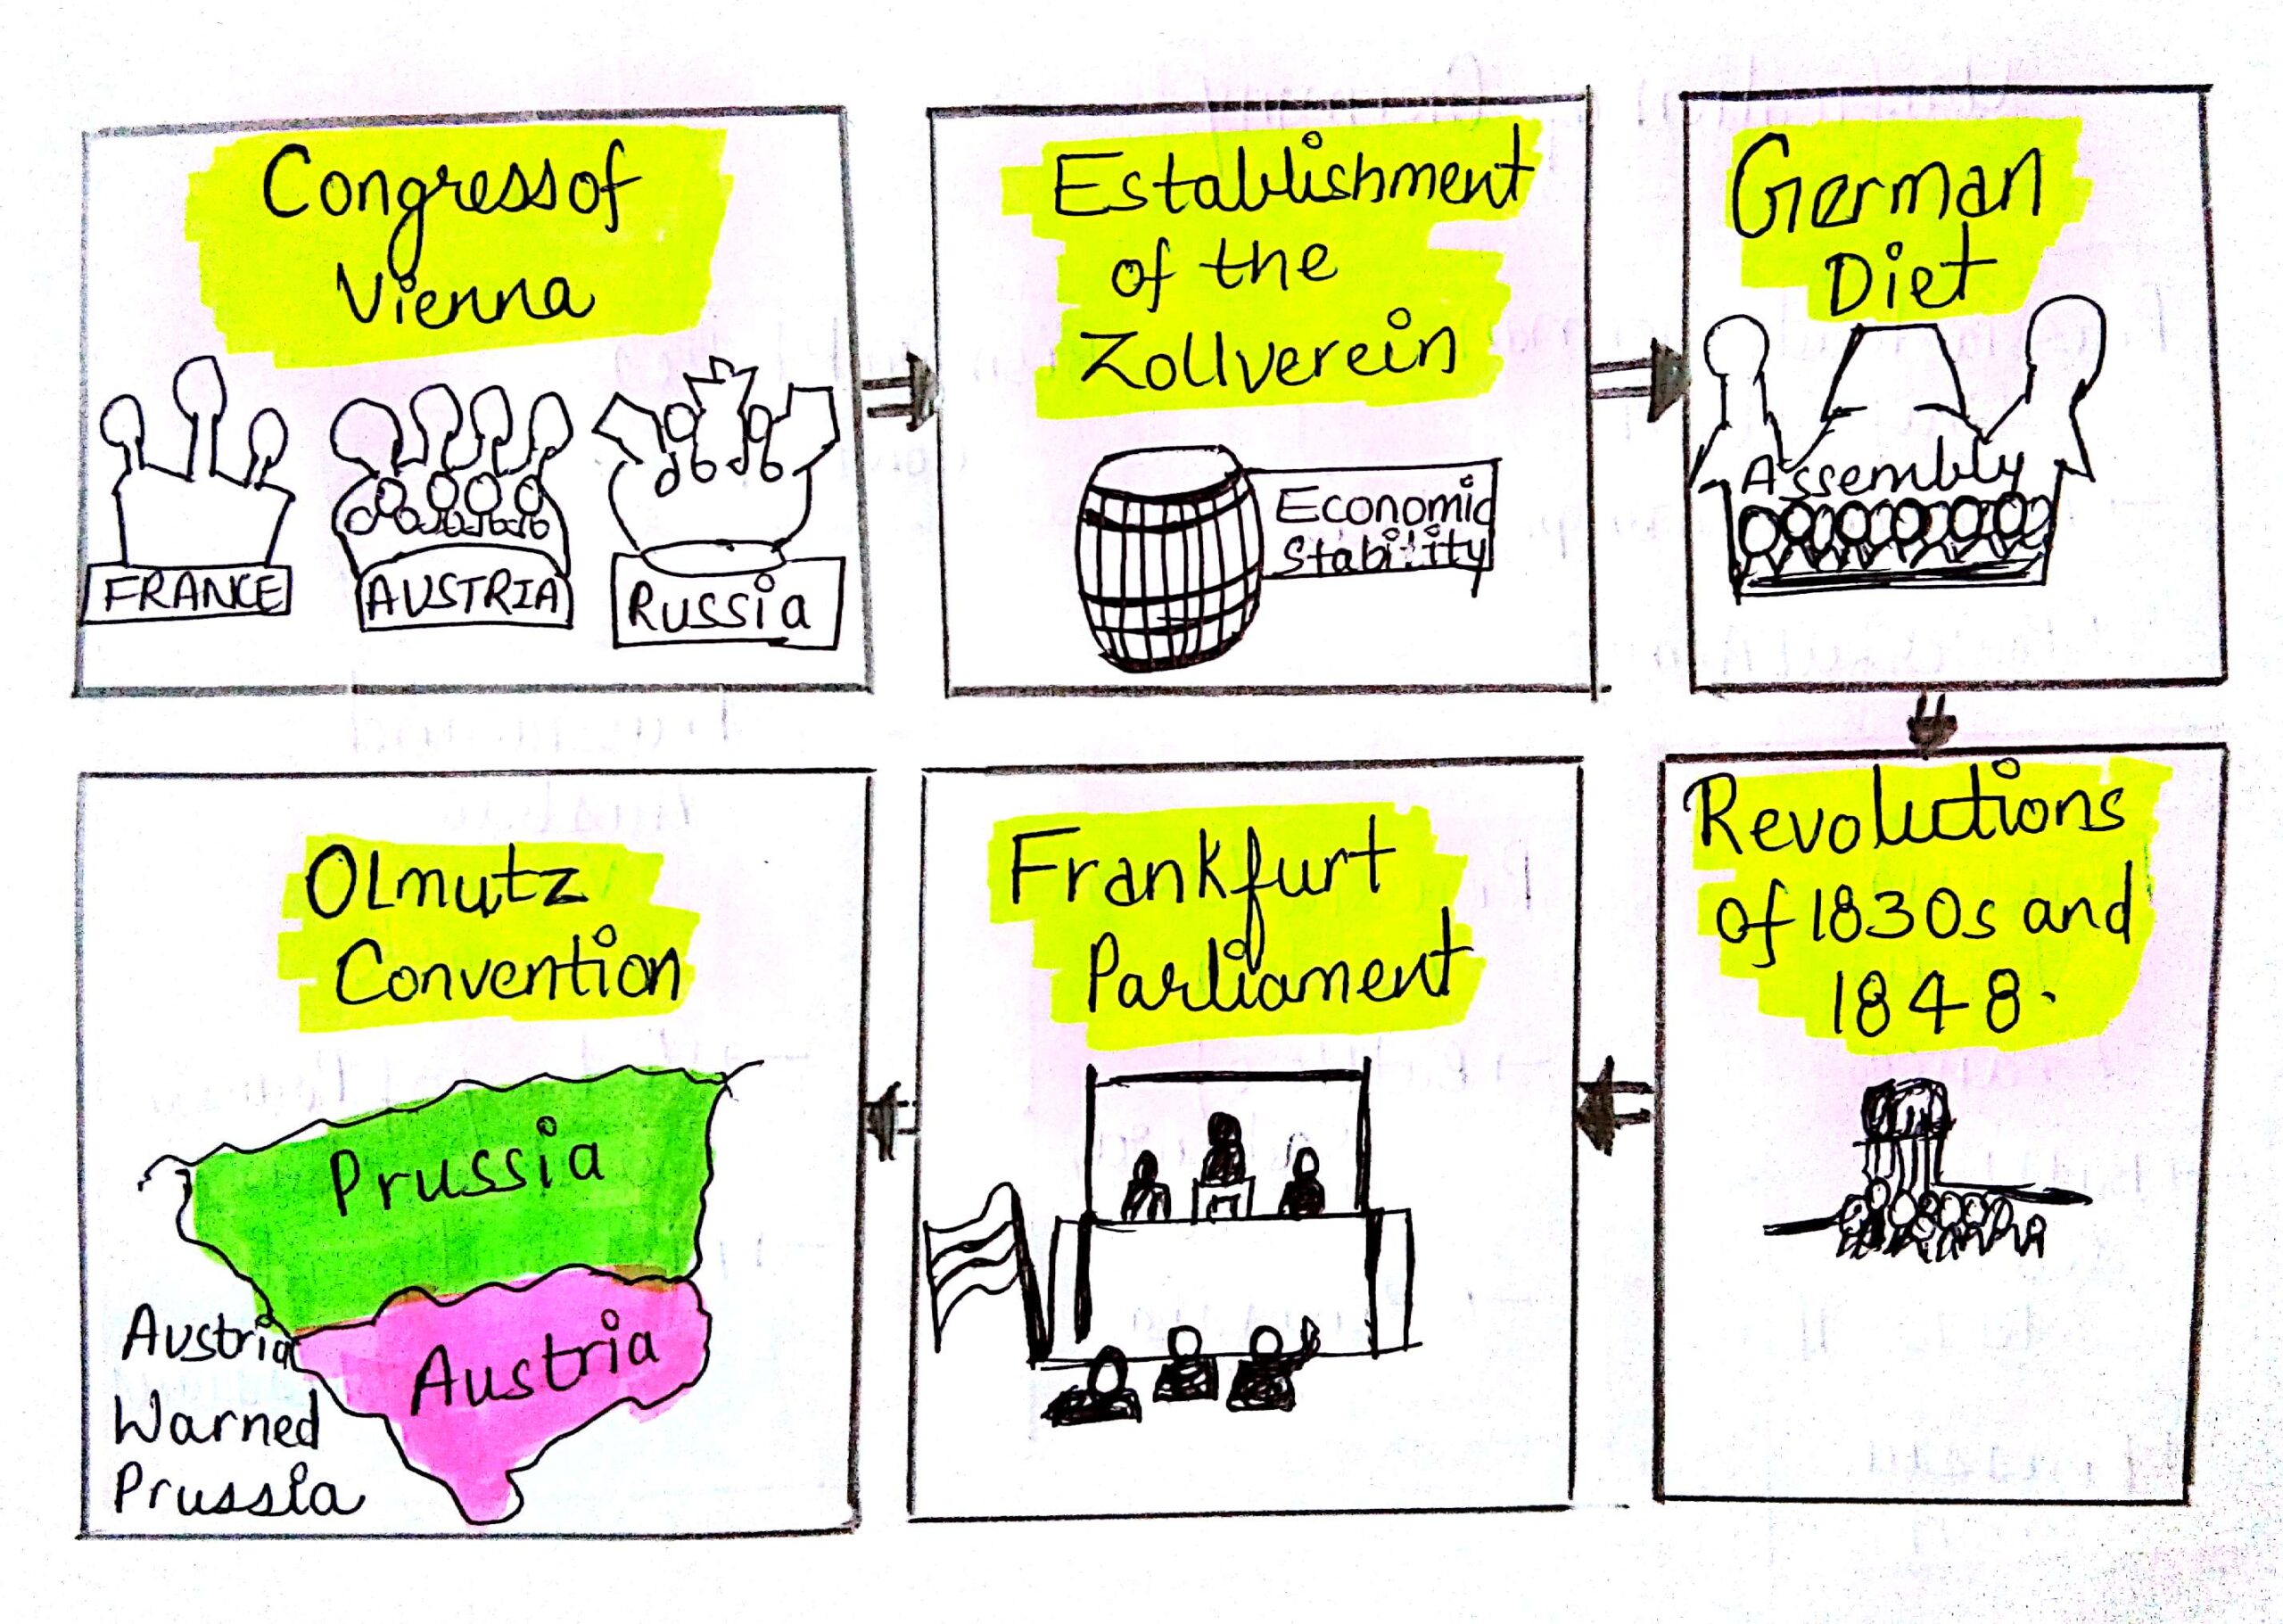 Congress of
Vienna
FRANCE
AUSTRIA
Russia
Establishment
of the
Zollverein
Economic
Stability
German
Diet
Assembly
Revolutions
of 1830s and
1848.
Frankfurt
Parliament
Olmutz
Convention
Prussia
Austria
Austria
Warned
Prussia